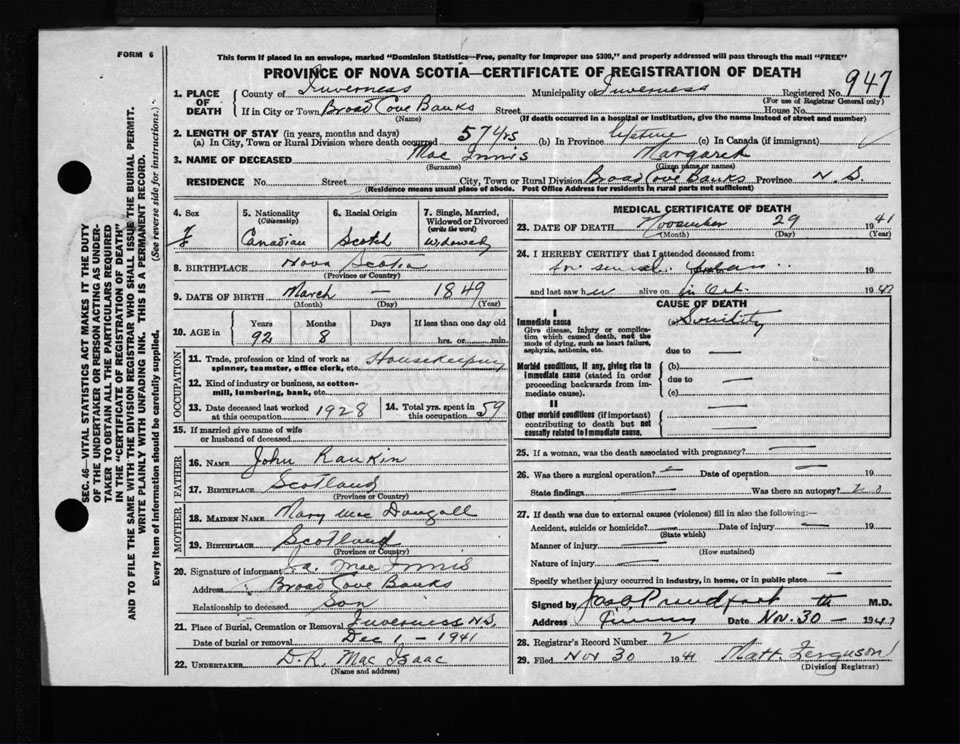 FORM 6
This form if placed in an envelope, marked "Dominion Statistics—Free, penalty for improper use $300," and properly addressed will pass through the mail "FREE"
PROVINCE OF NOVA SCOTIA—CERTIFICATE OF REGISTRATION OF DEATH
1. PLACE OF DEATH County of Inverness Municipality of Inverness Registered No. 947
(For use of Registrar General only)
If in City or Town Broad Cove Banks Street House No.
(Name) (If death occurred in a hospital or institution, give the name instead of street and number)
2. LENGTH OF STAY (in years, months and days)
(a) In City, Town or Rural Division where death occurred 57 yrs (b) In Province lifetime (c) In Canada (if immigrant)
3. NAME OF DECEASED Mac Innis Margaret
(Surname) (Given name or names)
RESIDENCE No. Street City, Town or Rural Division Broad Cove Banks Province N. S.
(Residence means usual place of abode. Post Office Address for residents in rural parts not sufficient)
4. Sex 5. Nationality (Citizenship) 6. Racial Origin 7. Single, Married, Widowed or Divorced (write the word)
F Canadian Scotch Widowed
8. BIRTHPLACE Nova Scotia
(Province or Country)
9. DATE OF BIRTH March — 1849
(Month) (Day) (Year)
10. AGE in Years Months Days If less than one day old
92 8 hrs. or min.
OCCUPATION
11. Trade, profession or kind of work as spinner, teamster, office clerk, etc. Housekeeping
12. Kind of industry or business, as cotton-mill, lumbering, bank, etc.
13. Date deceased last worked at this occupation 1928 14. Total yrs. spent in this occupation 59
15. If married give name of wife or husband of deceased
FATHER
16. NAME John Rankin
17. BIRTHPLACE Scotland
(Province or Country)
MOTHER
18. MAIDEN NAME Mary Mac Dougall
19. BIRTHPLACE Scotland
(Province or Country)
20. Signature of informant J. A. Mac Innis
Address Broad Cove Banks
Relationship to deceased Son
21. Place of Burial, Cremation or Removal Inverness N.S.
Date of burial or removal Dec 1 – 1941
22. UNDERTAKER D. R. Mac Isaac
(Name and address)
MEDICAL CERTIFICATE OF DEATH
23. DATE OF DEATH November 29 1941
(Month) (Day) (Year)
24. I HEREBY CERTIFY that I attended deceased from:
for 19
and last saw her alive on in Oct. 19
CAUSE OF DEATH
I
Immediate cause
Give disease, injury or complication which caused death, not the mode of dying, such as heart failure, asphyxia, asthenia, etc.
(a) Senility
due to —
Morbid conditions, if any, giving rise to immediate cause (stated in order proceeding backwards from immediate cause).
(b)
due to —
(c)
II
Other morbid conditions (if important) contributing to death but not causally related to immediate cause.
25. If a woman, was the death associated with pregnancy? —
26. Was there a surgical operation? — Date of operation — 19
State findings — Was there an autopsy? no
27. If death was due to external causes (violence) fill in also the following:—
Accident, suicide or homicide? — Date of injury — 19
(State which)
Manner of injury —
(How sustained)
Nature of injury —
Specify whether injury occurred in industry, in home, or in public place —
Signed by Jas. Proudfoot M.D.
Address Date Nov. 30 – 1941
28. Registrar's Record Number 2
29. Filed Nov 30 1941 Matt Ferguson
(Division Registrar)
SEC. 46—VITAL STATISTICS ACT MAKES IT THE DUTY
OF THE UNDERTAKER OR PERSON ACTING AS UNDER-
TAKER TO OBTAIN ALL THE PARTICULARS REQUIRED
IN THE "CERTIFICATE OF REGISTRATION OF DEATH"
AND TO FILE THE SAME WITH THE DIVISION REGISTRAR WHO SHALL ISSUE THE BURIAL PERMIT.
WRITE PLAINLY WITH UNFADING INK. THIS IS A PERMANENT RECORD.
Every item of information should be carefully supplied. (See reverse side for instructions.)